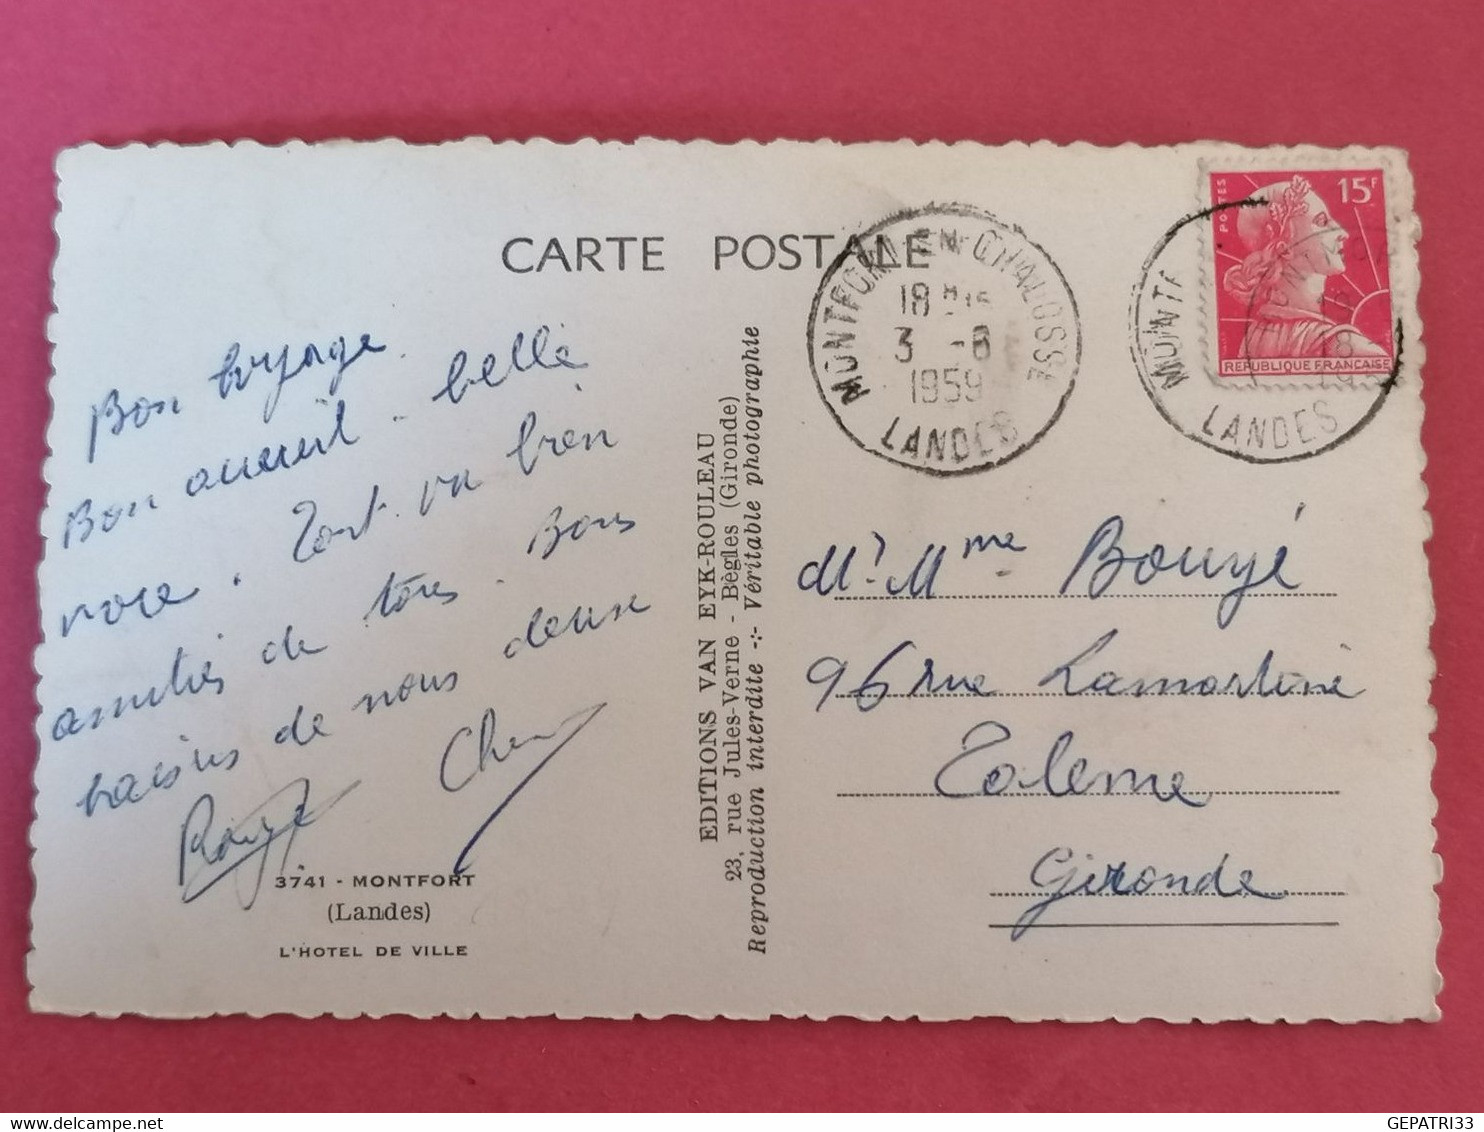 CARTE POSTALE
Bon voyage.
Bon accueil - belle
noce. Tout va bien
amitiés de tous. Bons
baisers de nous deux
3741 - MONTFORT
(Landes)
L'HOTEL DE VILLE
EDITIONS VAN EYK-ROULEAU
23, rue Jules-Verne - Bègles (Gironde)
Reproduction interdite -:- Véritable photographie
MONTFORT-EN-CHALOSSE
18
3 -8
1959
LANDES
POSTES
15F
REPUBLIQUE FRANÇAISE
LANDES
Mr. Mme Bouyé
96 rue Lamartine
Talence
Gironde
GEPATRI33